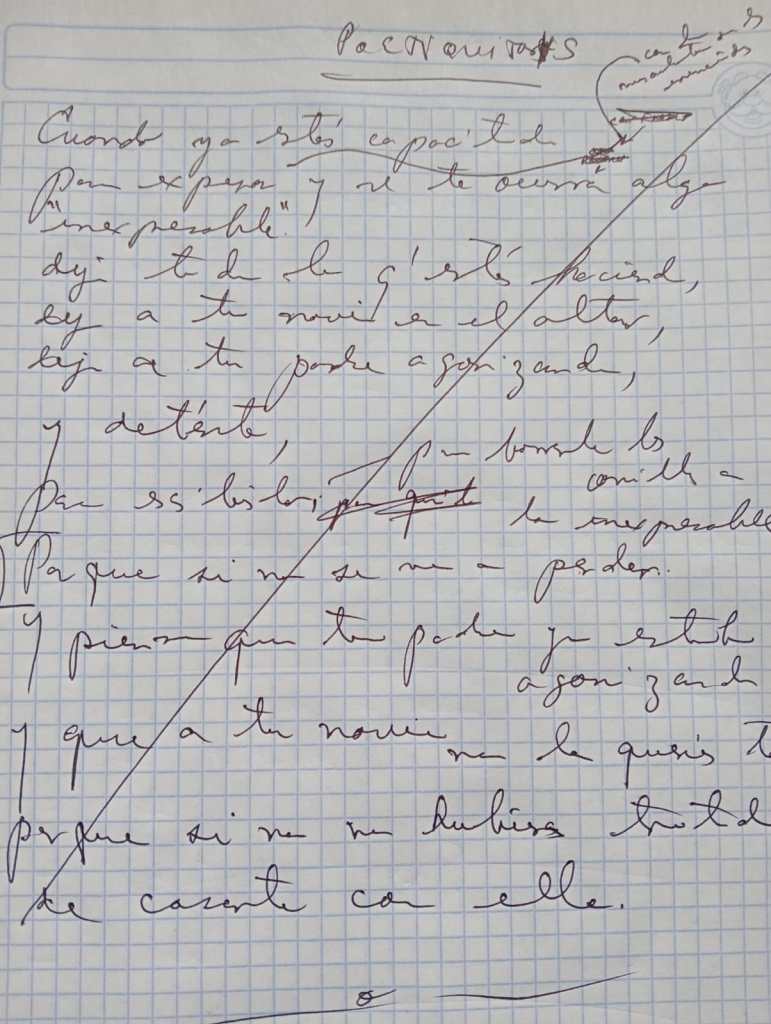 Cuando ya estés capacitado
para expresar y se te ocurrá algo
"inexpresable".
deja todo lo q' estés haciendo,
deja a tu novia en el altar,
deja a tu padre agonizando,
y deténte,
para escribirlo, para borrarle las
comillas a
lo inexpresable
Porque si no se va a perder.
Y piensa que tu padre ya estaba
agonizando
y que a tu novia no la querías
porque si no no hubieras tratado
de casarte con ella.